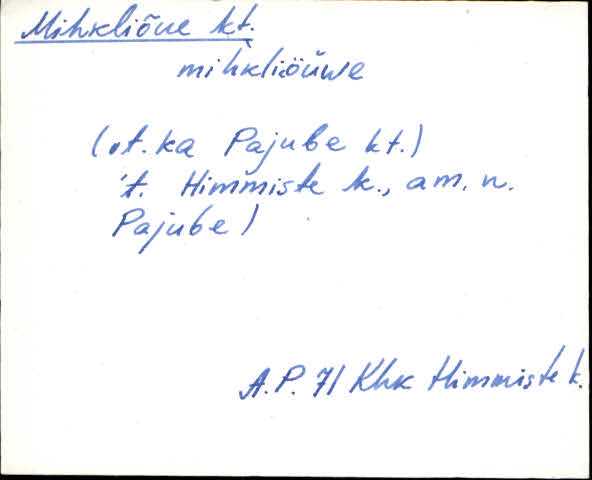 Mihkliõue kt.
mihkliöüwe
(vt. ka Pajube kt.)
t. Himmiste k., am. n.
Pajube)
A. P. 71 Khk Himmiste k.